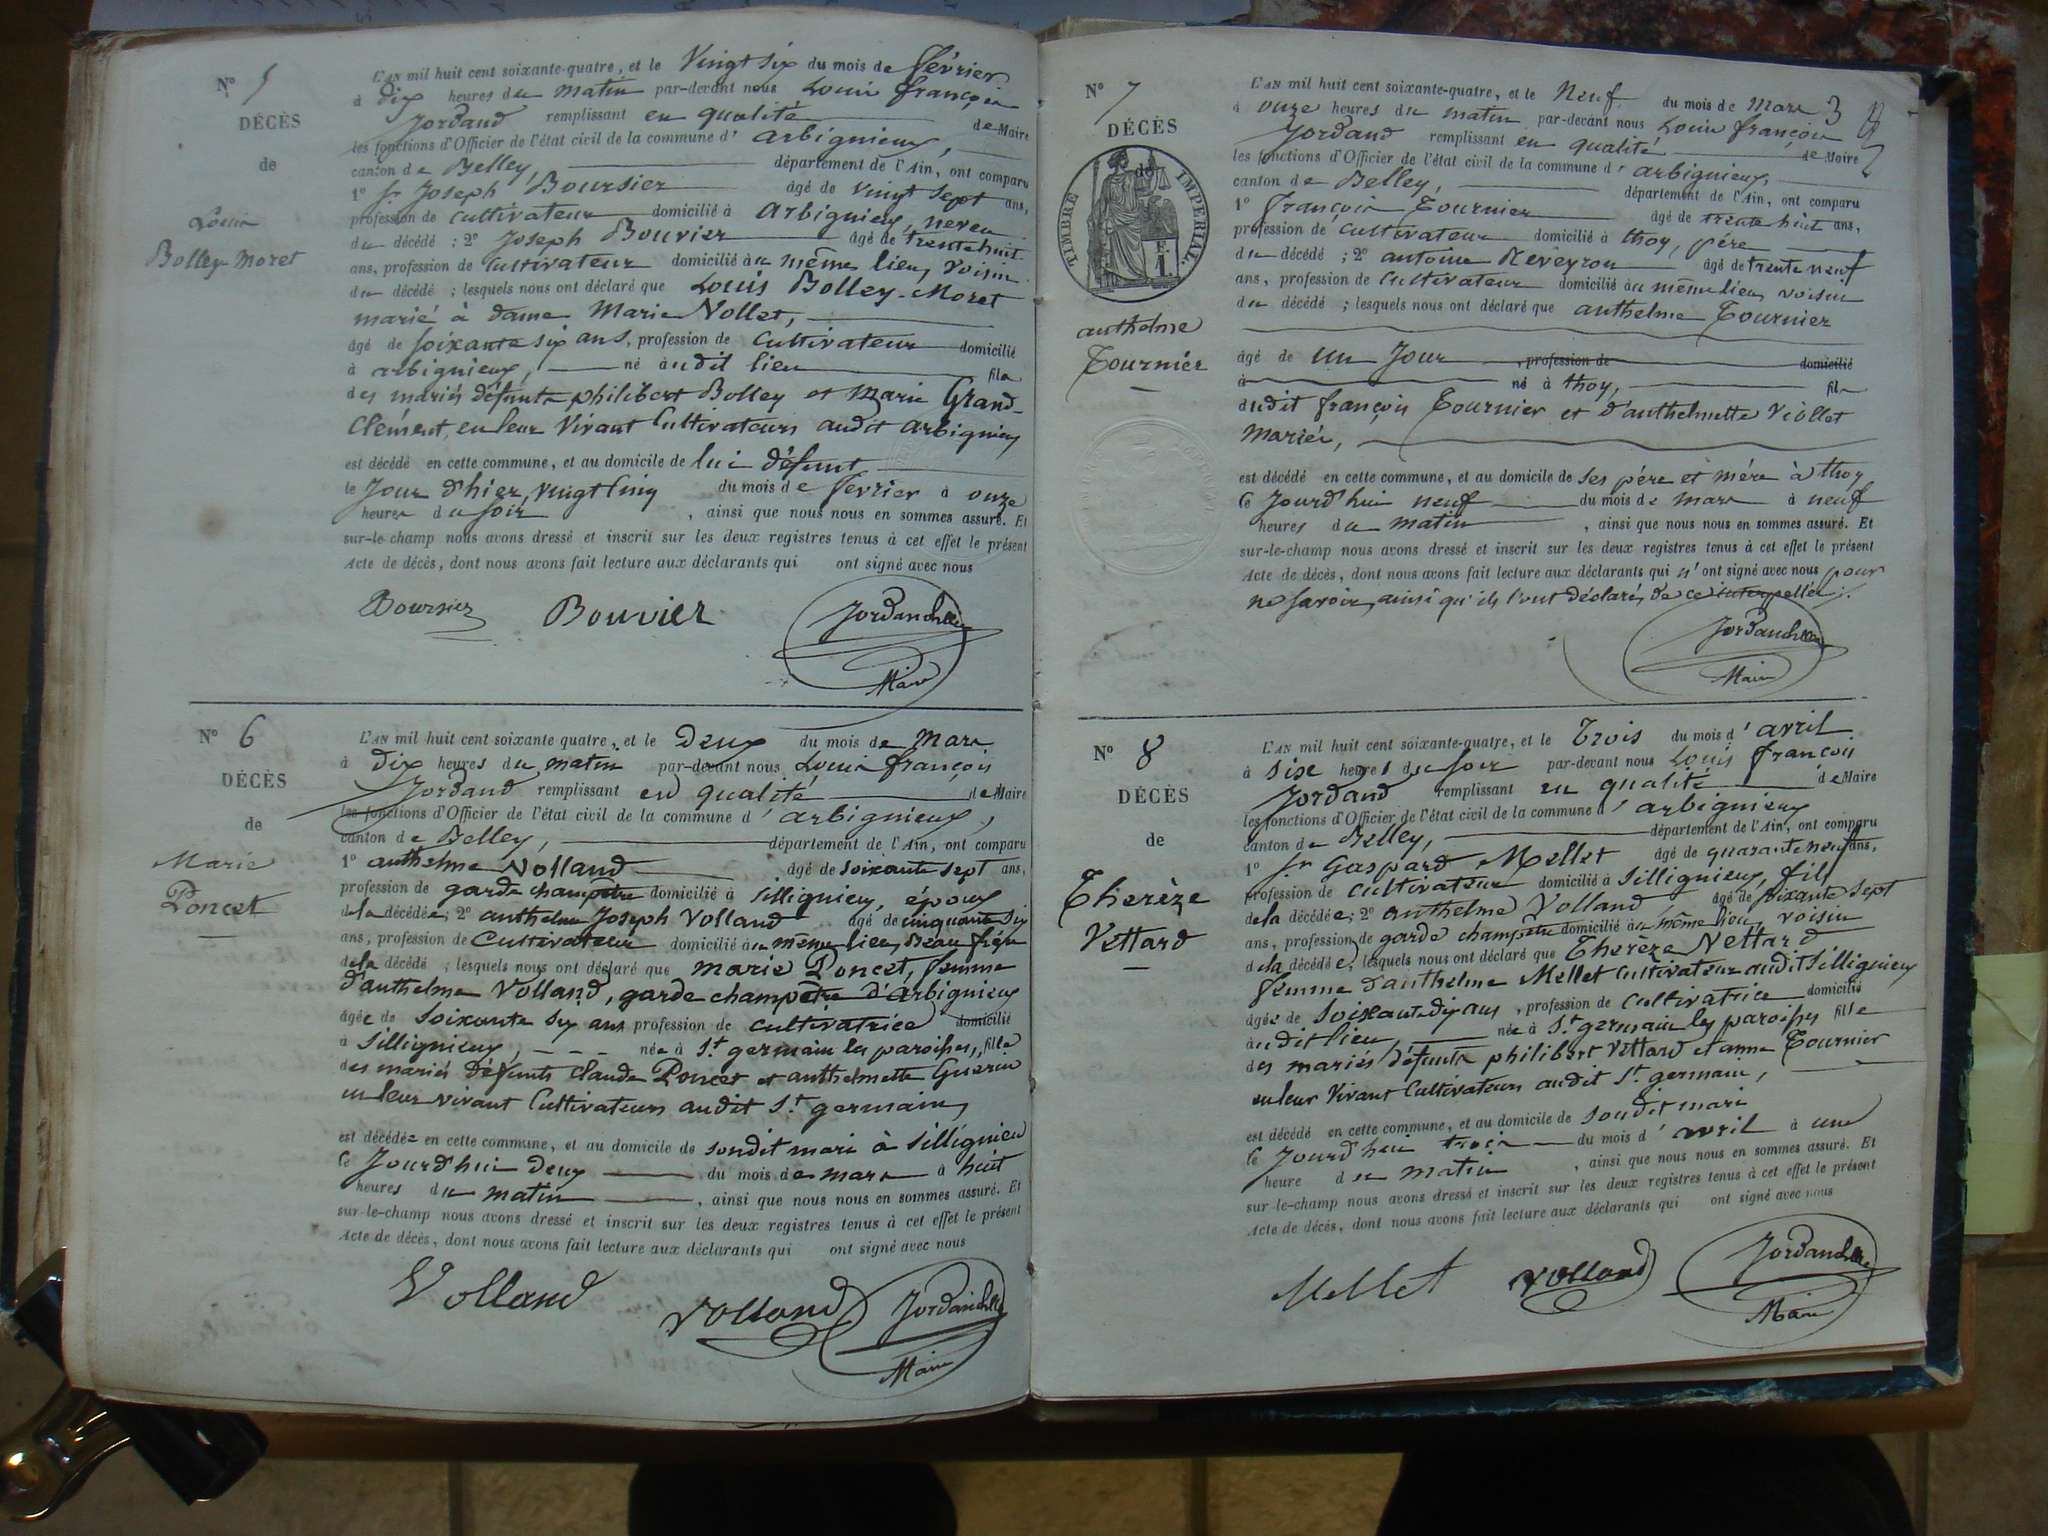 N° 5
DÉCÈS
de
Louis
Bolley-Moret
L'AN mil huit cent soixante-quatre, et le Vingt six du mois de février
à dix heures du matin par-devant nous Louis françois
Jordand remplissant en qualité de Maire
les fonctions d'Officier de l'état civil de la commune d'arbignieux,
canton de Belley, département de l'Ain, ont comparu
1° Sr Joseph Boursier âgé de vingt sept ans,
profession de cultivateur domicilié à arbignieux, neveu
du décédé ; 2° Joseph Bouvier âgé de trente huit
ans, profession de cultivateur domicilié au même lieu, voisin
du décédé ; lesquels nous ont déclaré que Louis Bolley-Moret
marié à dame Marie Vollet,
âgé de soixante six ans, profession de cultivateur domicilié
à arbignieux, né audit lieu fils
des mariés défunts philibert Bolley et Marie Grand-
Clément, en leur Vivant Cultivateurs audit arbignieux
est décédé en cette commune, et au domicile de lui défunt
le Jour d'hier, vingt cinq du mois de février à onze
heures du soir, ainsi que nous nous en sommes assuré. Et
sur-le-champ nous avons dressé et inscrit sur les deux registres tenus à cet effet le présent
Acte de décès, dont nous avons fait lecture aux déclarants qui ont signé avec nous
Boursier Bouvier Jordand
Maire
N° 6
DÉCÈS
de
Marie
Poncet
L'AN mil huit cent soixante quatre, et le Deux du mois de mars
à dix heures du matin par-devant nous Louis françois
Jordand remplissant en qualité de Maire
les fonctions d'Officier de l'état civil de la commune d'arbignieux,
canton de Belley, département de l'Ain, ont comparu
1° anthelme Volland âgé de soixante sept ans,
profession de garde champêtre domicilié à Sillignieux, époux
de la décédée ; 2° anthelme Joseph Volland âgé de cinquante six
ans, profession de Cultivateur domicilié au même lieu, Beau frère
de la décédé ; lesquels nous ont déclaré que marie Poncet, femme
d'anthelme Volland, garde champêtre d'arbignieux
âgée de soixante six ans profession de cultivatrice domicilié
à Sillignieux, née à St germain les paroisses, fille
des mariés défunts Claude Poncet et anthelmette Guerin
en leur vivant Cultivateurs audit St germain,
est décédée en cette commune, et au domicile de sondit mari à Sillignieu
le Jourd'hui deux du mois de mars à huit
heures du matin, ainsi que nous nous en sommes assuré. Et
sur-le-champ nous avons dressé et inscrit sur les deux registres tenus à cet effet le présent
Acte de décès, dont nous avons fait lecture aux déclarants qui ont signé avec nous
Volland Volland Jordand
Maire
3
N° 7
DÉCÈS
de
TIMBRE IMPÉRIAL
F.
1
anthelme
Tournier
L'AN mil huit cent soixante-quatre, et le Neuf du mois de Mars
à onze heures du matin par-devant nous Louis françois
Jordand remplissant en qualité de Maire
les fonctions d'Officier de l'état civil de la commune d'arbignieux,
canton de Belley, département de l'Ain, ont comparu
1° françois Tournier âgé de trente huit ans,
profession de cultivateur domicilié à thoy, père
du décédé ; 2° antoine Reveyron âgé de trente neuf
ans, profession de Cultivateur domicilié au même lieu, voisin
du décédé ; lesquels nous ont déclaré que anthelme Tournier
âgé de un Jour, profession de domicilié
à né à thoy, fils
dudit françois Tournier et d'anthelmette Viollet
mariés,
est décédé en cette commune, et au domicile de ses père et mère à thoy
le Jourd'hui neuf du mois de mars à neuf
heures du matin, ainsi que nous nous en sommes assuré. Et
sur-le-champ nous avons dressé et inscrit sur les deux registres tenus à cet effet le présent
Acte de décès, dont nous avons fait lecture aux déclarants qui n'ont signé avec nous pour
ne savoir, ainsi qu'ils l'ont déclaré, de ce interpellés.
Jordand
Maire
N° 8
DÉCÈS
de
Therèze
Vettard
L'AN mil huit cent soixante-quatre, et le Trois du mois d'avril
à six heures du soir par-devant nous Louis françois
Jordand remplissant en qualité de Maire
les fonctions d'Officier de l'état civil de la commune d'arbignieux
canton de Belley, département de l'Ain, ont comparu
1° Sr Gaspard Mellet âgé de quarante neuf ans,
profession de cultivateur domicilié à Sillignieux, fils
de la décédée ; 2° anthelme Volland âgé de soixante sept
ans, profession de garde champêtre domicilié au même lieu, voisin
de la décédée ; lesquels nous ont déclaré que Therèze Vettard
femme d'anthelme Mellet Cultivateur audit Sillignieux
âgée de soixante dix ans, profession de Cultivatrice domicilié
audit lieu, née à St germain les paroisses fille
des mariés défunts philibert Vettard et anne Tournier
en leur Vivant Cultivateurs audit St germain,
est décédé en cette commune, et au domicile de sondit mari
le Jourd'hui trois du mois d'avril à une
heure du matin, ainsi que nous nous en sommes assuré. Et
sur-le-champ nous avons dressé et inscrit sur les deux registres tenus à cet effet le présent
Acte de décès, dont nous avons fait lecture aux déclarants qui ont signé avec nous
Mellet Volland Jordand
Maire